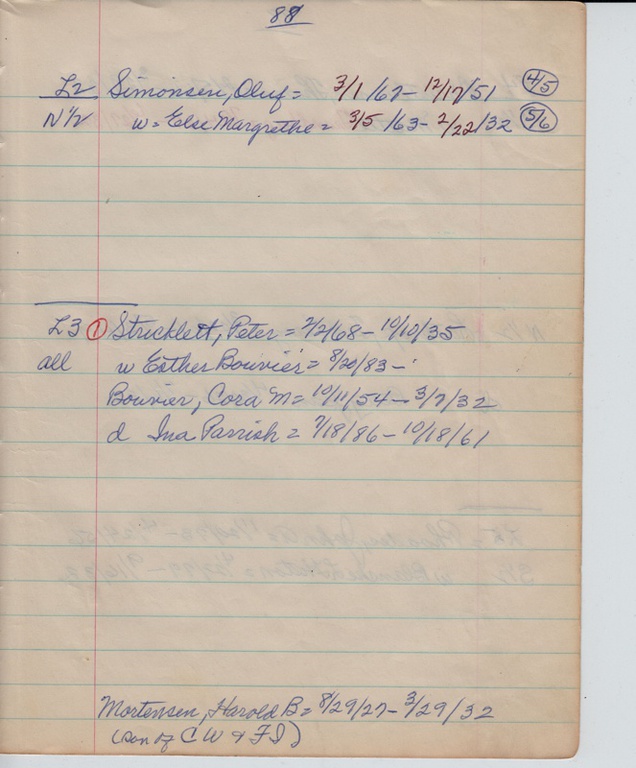 88
L2 Simonsen, Oluf = 3/1/67 - 12/17/51 4/5
N 1/2 w = Else Margrethe = 3/5/63 - 2/22/32 5/6
L3 1 Stricklett, Peter = 2/2/68 - 10/10/35
all w Esther Bouvier = 8/20/83 -
Bouvier, Cora M = 10/11/54 - 3/7/32
d Ina Parrish = 7/18/86 - 10/18/61
Mortensen, Harold B = 8/29/27 - 3/29/32
(son of C W & F I)